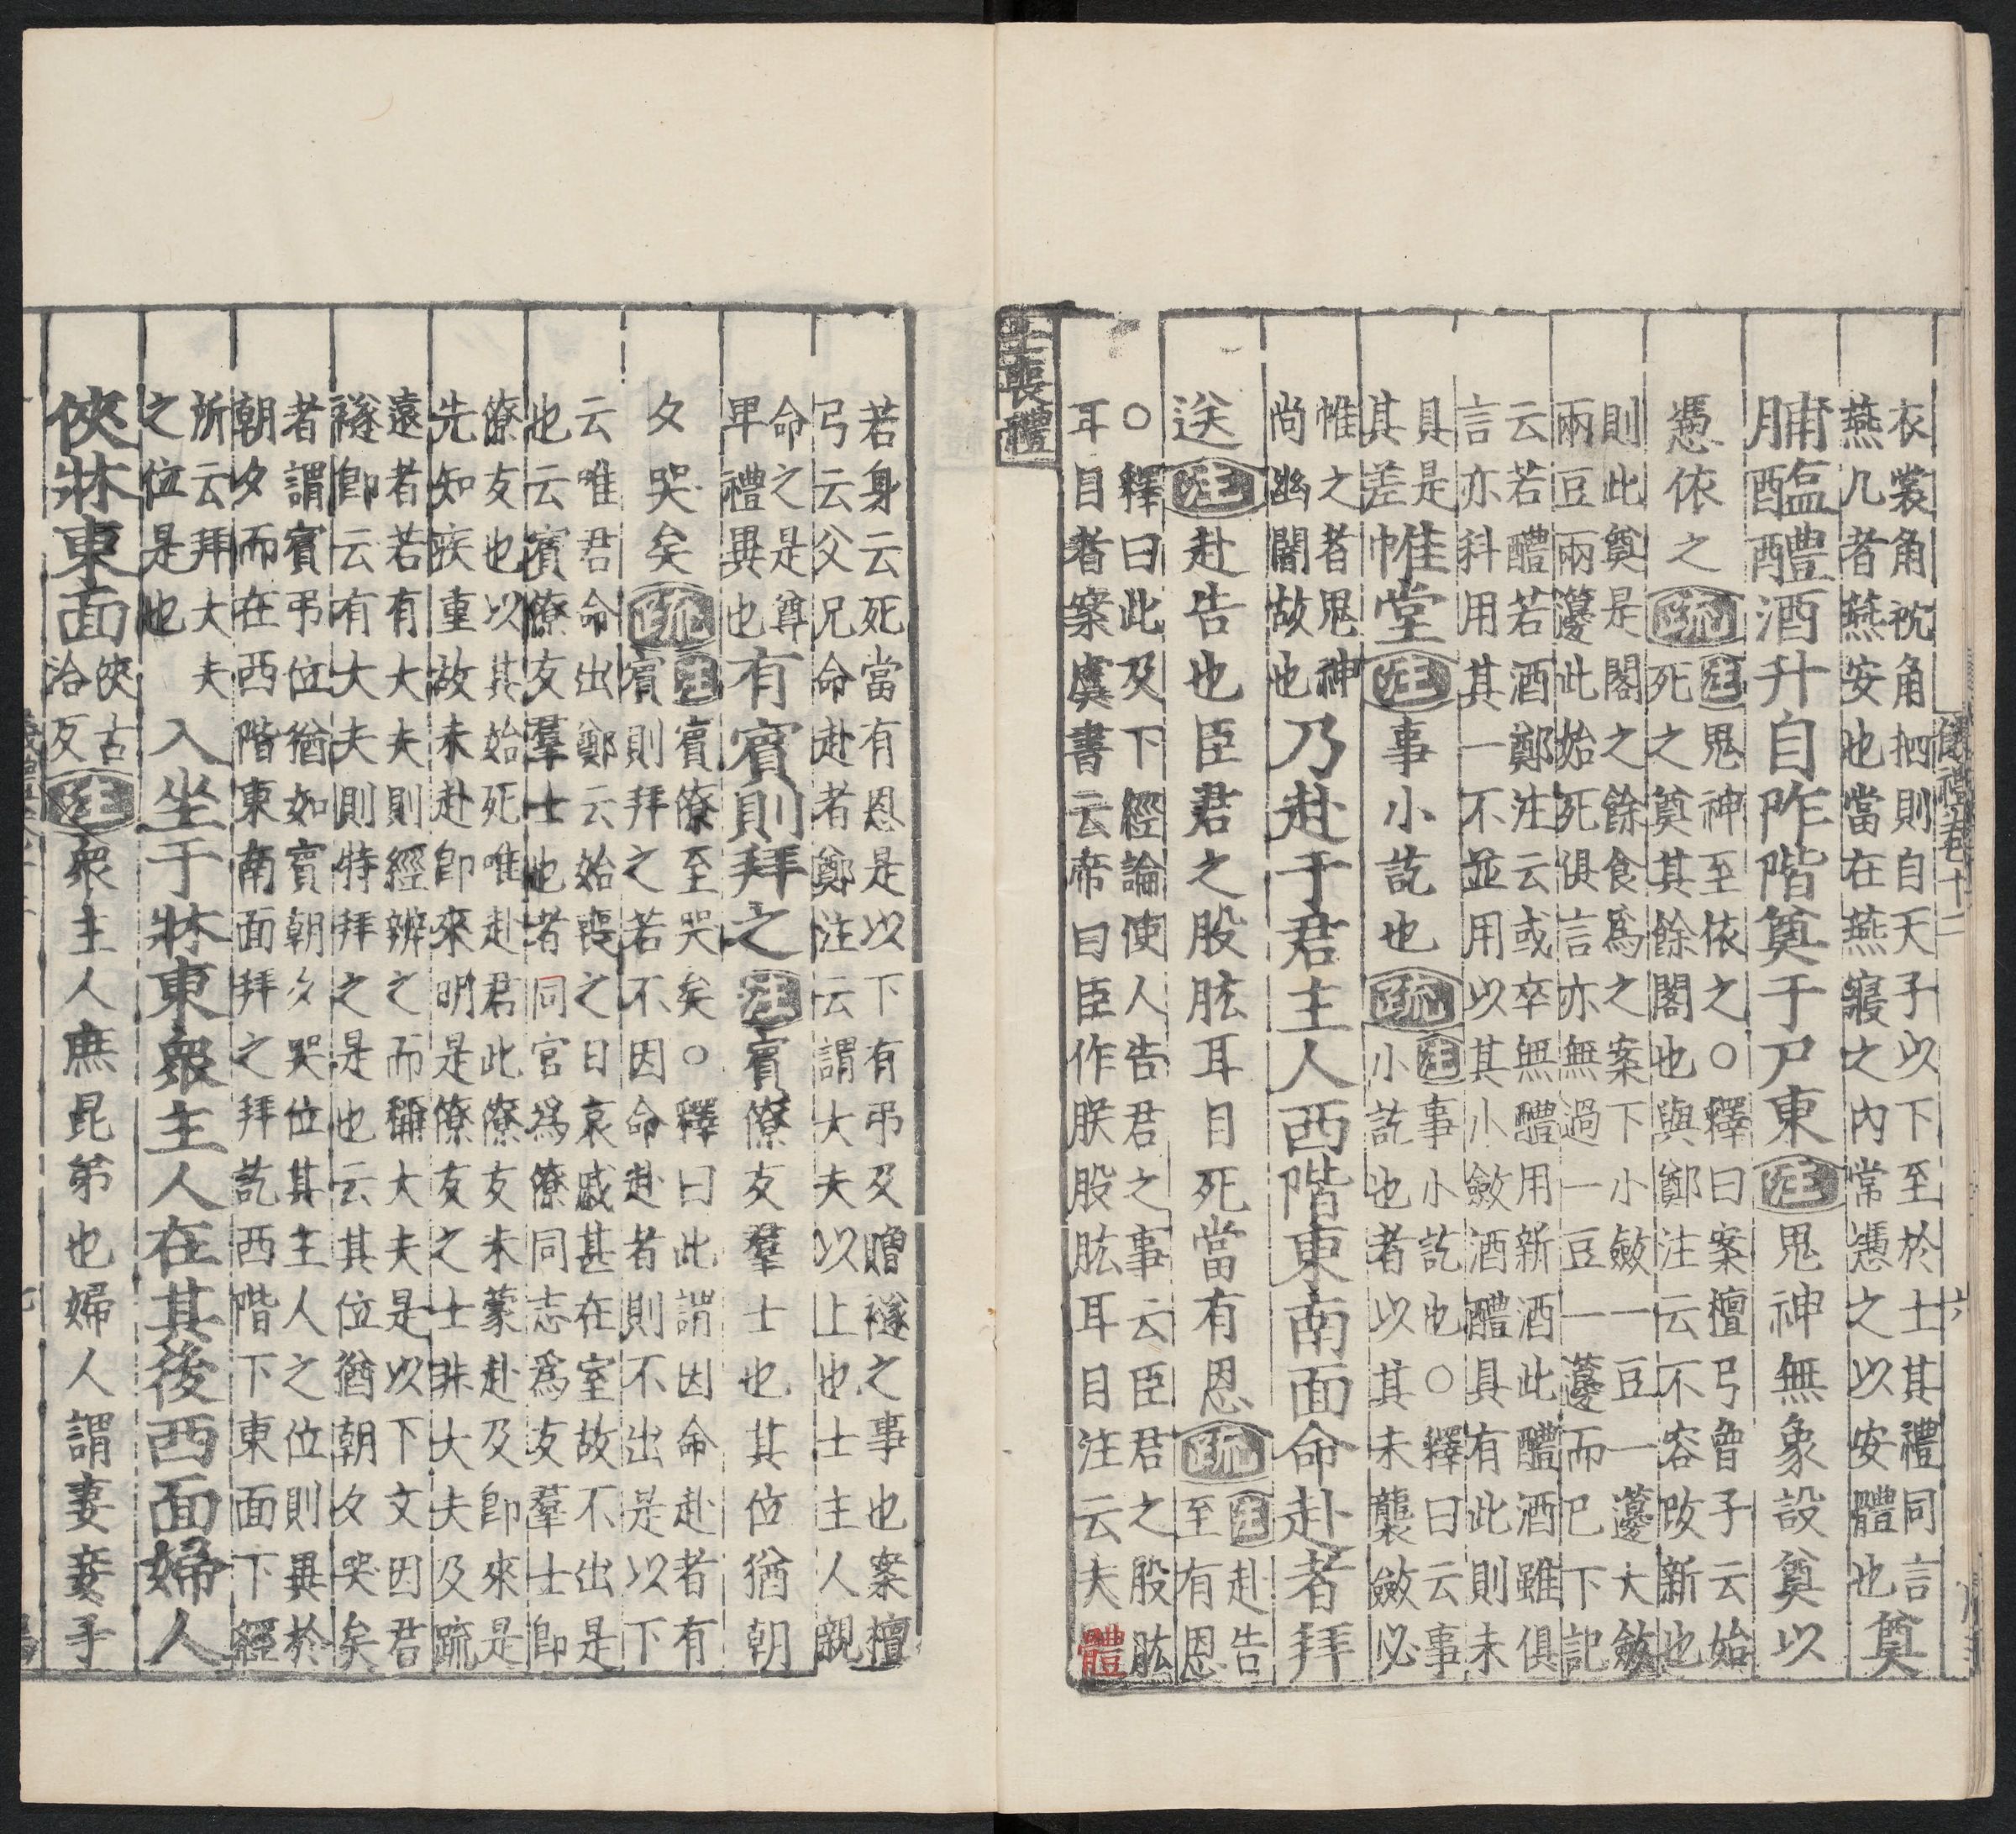 儀禮卷十二
六
衣裳角柶角柶則自天子以下至於士其禮同言
燕几者燕安也當在燕寢之內常憑之以安體也
奠
脯醢醴酒升自阼階奠于尸東
注
鬼神無象設奠以
憑依之
疏
注鬼神至依之○釋曰案檀弓曾子云始
死之奠其餘閣也與鄭注云不容改新也
則此奠是閣之餘食爲之案下小斂一豆一籩大斂
兩豆兩籩此始死俱言亦無過一豆一籩而已下記
云若醴若酒鄭注云或卒無醴用新酒此醴酒雖俱
言亦科用其一不並用以其小斂酒醴具有此則未
具是
其差
帷堂
注
事小訖也
疏
注事小訖也○釋曰云事
小訖也者以其未襲斂必
帷之者鬼神
尚幽闇故也
乃赴于君主人西階東南面命赴者拜
送
注
赴告也臣君之股肱耳目死當有恩
疏
注赴告
至有恩
○釋曰此及下經論使人告君之事云臣君之股肱
耳目者案虞書云帝曰臣作朕股肱耳目注云夫體
士喪禮
若身云死當有恩是以下有弔及贈襚之事也案檀
弓云父兄命赴者鄭注云謂大夫以上也士主人親
命之是尊
卑禮異也
有賓則拜之
注
賓僚友羣士也其位猶朝
夕哭矣
疏
注賓僚至哭矣○釋曰此謂因命赴者有
賓則拜之若不因命赴者則不出是以下
云唯君命出鄭云始喪之日哀戚甚在室故不出是
也云賓僚友羣士也者同官爲僚同志爲友羣士即
僚友也以其始死唯赴君此僚友未蒙赴及即來是
先知疾重故未赴即來明是僚友之士非大夫及疏
遠者若有大夫則經辨之而稱大夫是以下文因君
襚即云有大夫則特拜之是也云其位猶朝夕哭矣
者謂賓弔位猶如賓朝夕哭位其主人之位則異於
朝夕而在西階東南面拜之拜訖西階下東面下經
所云拜大夫
之位是也
入坐于牀東衆主人在其後西面婦人
俠牀東面
俠古
洽反
注
衆主人庶昆弟也婦人謂妻妾子